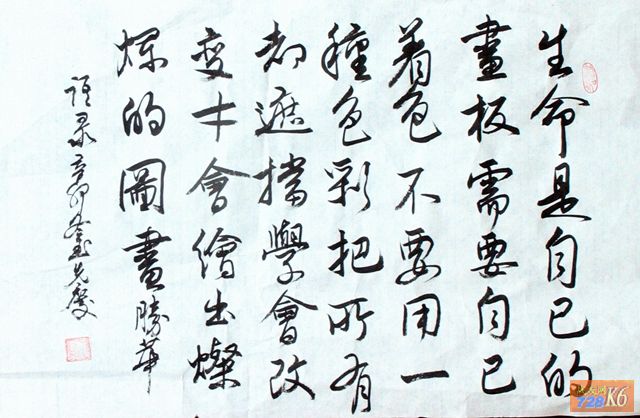 生命是自己的
畫板需要自己
着色不要用一
種色彩把所有
都遮擋學會改
變才會繪出燦
爛的圖畫勝華
語录辛卯奎玉先慶
728 K6